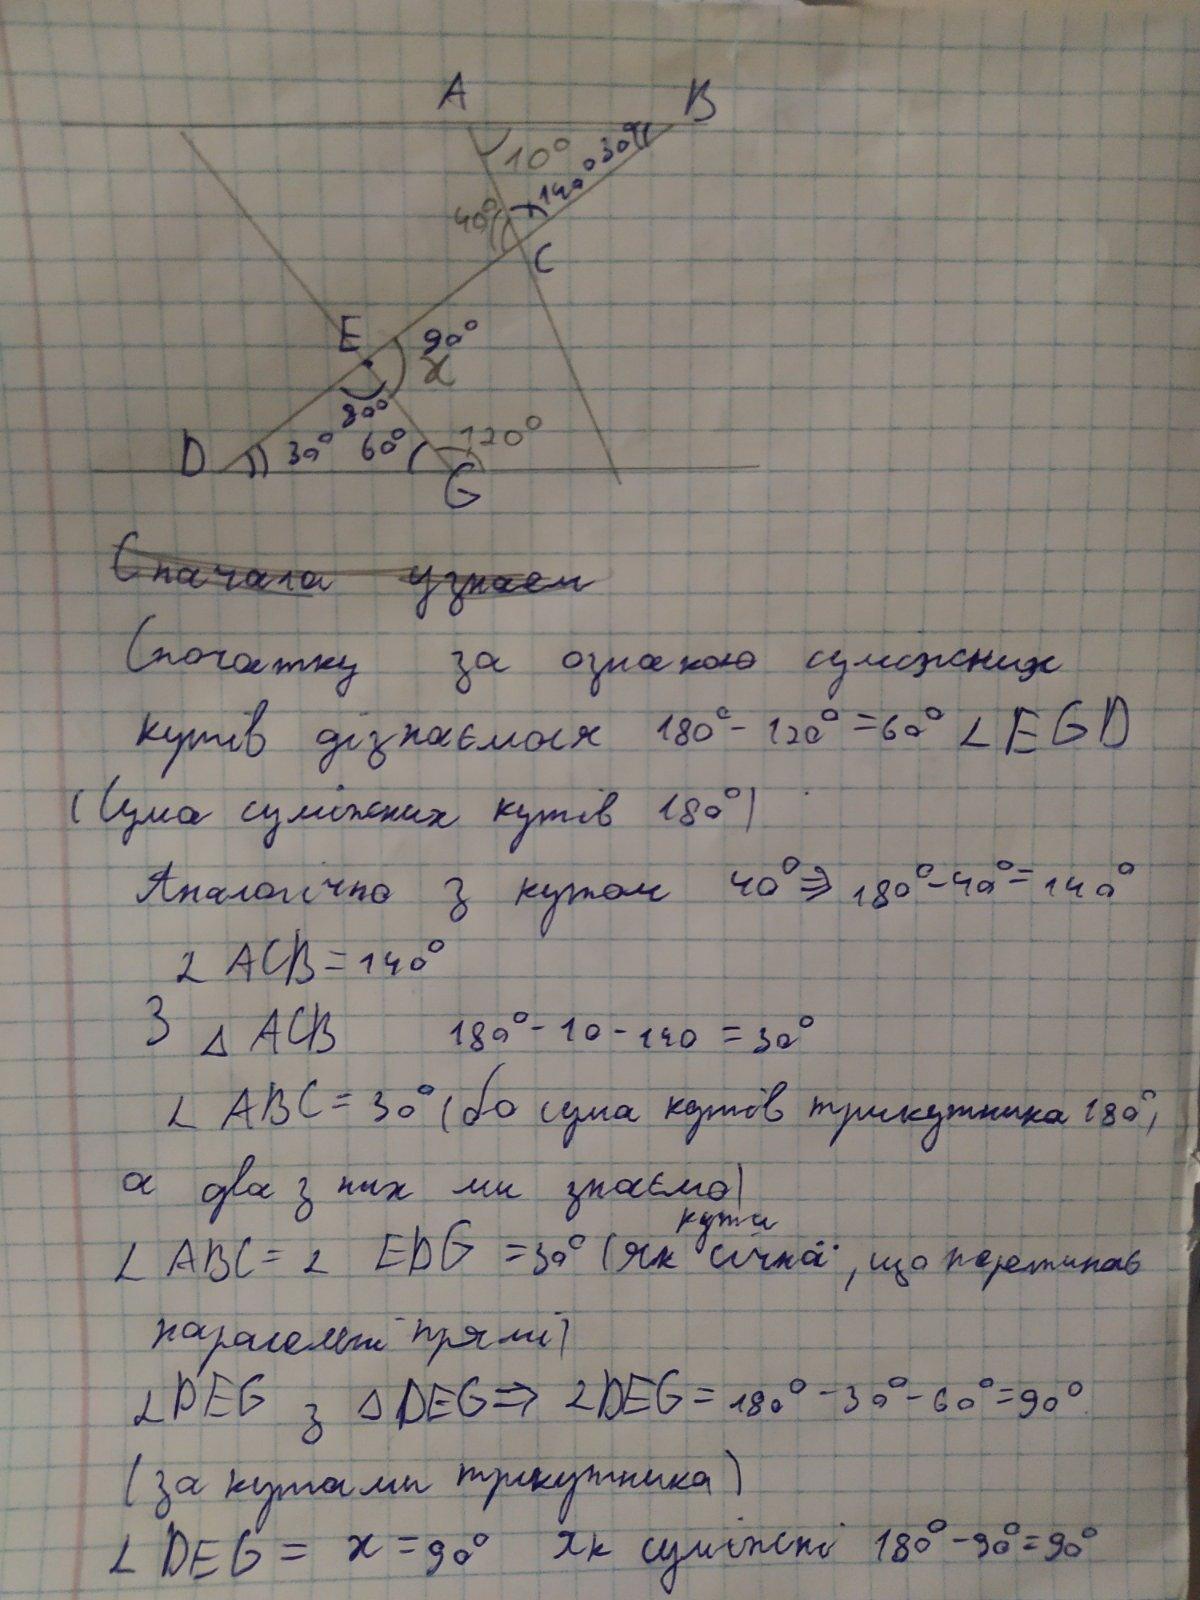 A B
10° 30°
140°
40°
C
E 90°
x
80°
D 30° 60° 120°
G
Сначала узнаем
Спочатку за ознакою суміжних
кутів дізнаємося 180° - 120° = 60° ∠EGD
(Сума суміжних кутів 180°)
Аналогічно з кутом 40° ⇒ 180° - 40° = 140°
∠ ACB = 140°
З △ ACB 180° - 10 - 140 = 30°
∠ ABC = 30° (бо сума кутів трикутника 180°,
а два з них ми знаємо)
кути
∠ ABC = ∠ EDG = 30° (як січна, що перетинає
паралелні прямі)
∠DEG з △DEG ⇒ ∠DEG = 180° - 30° - 60° = 90°
(за кутами трикутника)
∠ DEG = x = 90° Як суміжні 180° - 90° = 90°